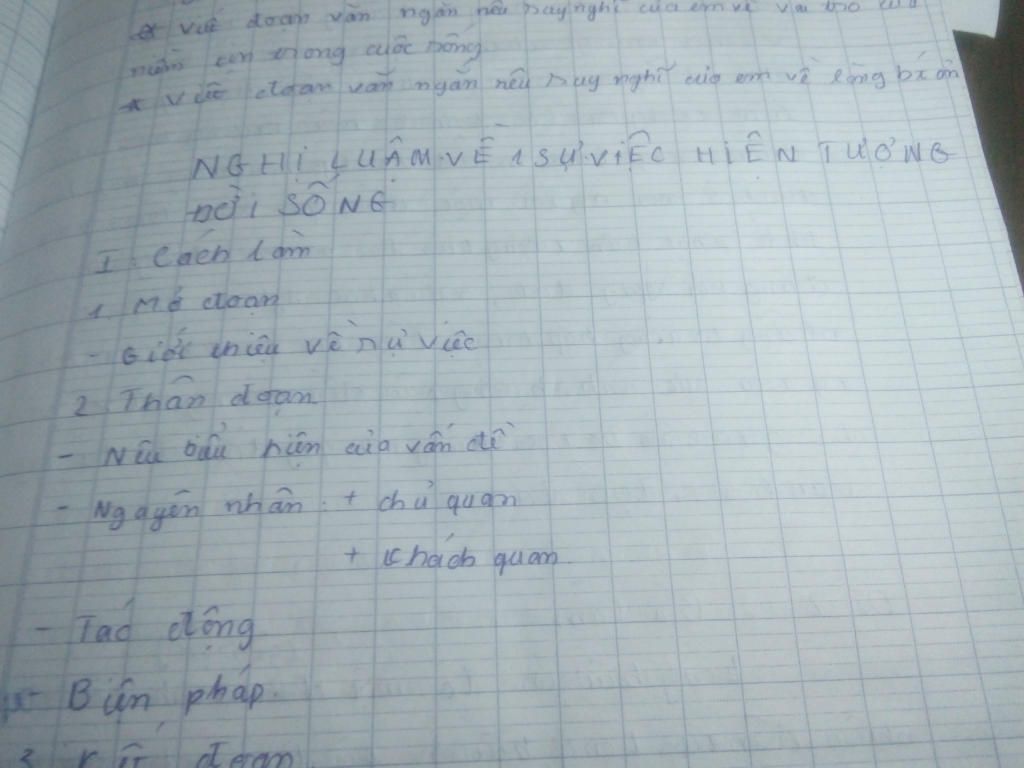 * Viết đoạn văn ngắn nêu suy nghĩ của em về vai trò của
niềm tin trong cuộc sống
* Viết đoạn văn ngắn nêu suy nghĩ của em về lòng biết ơn
NGHỊ LUẬN VỀ 1 SỰ VIỆC HIỆN TƯỢNG
ĐỜI SỐNG
I. Cách làm
1. Mở đoạn
- Giới thiệu về sự việc
2 Thân đoạn
- Nêu biểu hiện của vấn đề
- Nguyên nhân : + chủ quan
+ Khách quan
- Tác động
- Biện pháp.
3 Kết đoạn